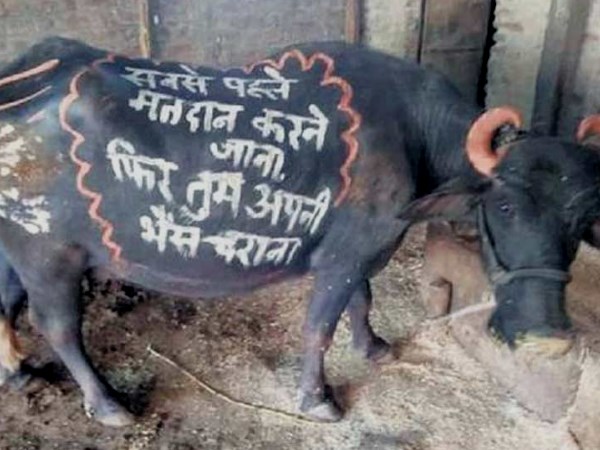 सबसे पहले
मतदान करने
जाना,
फिर तुम अपनी
भैंस चराना